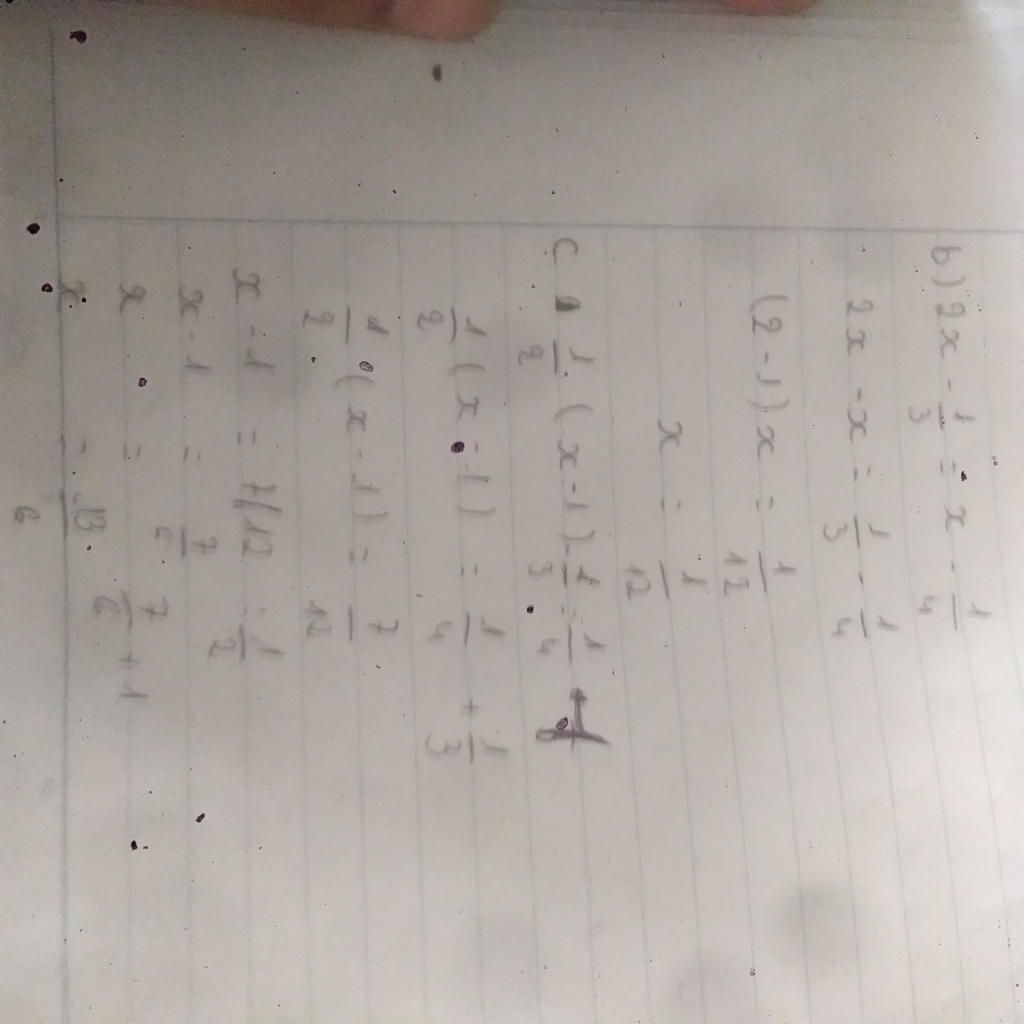 b) 2x - 1/3 = x - 1/4
2x - x = 1/3 - 1/4
(2 - 1) x = 1/12
x = 1/12
c 1/2 . (x - 1) - 1/3 = 1/4
1/2 (x - 1) = 1/4 + 1/3
1/2 (x - 1) = 7/12
x - 1 = 7/12 : 1/2
x - 1 = 7/6
x = 7/6 + 1
x = 13/6